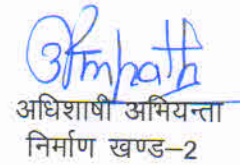 अधिशाषी अभियन्ता
निर्माण खण्ड–2